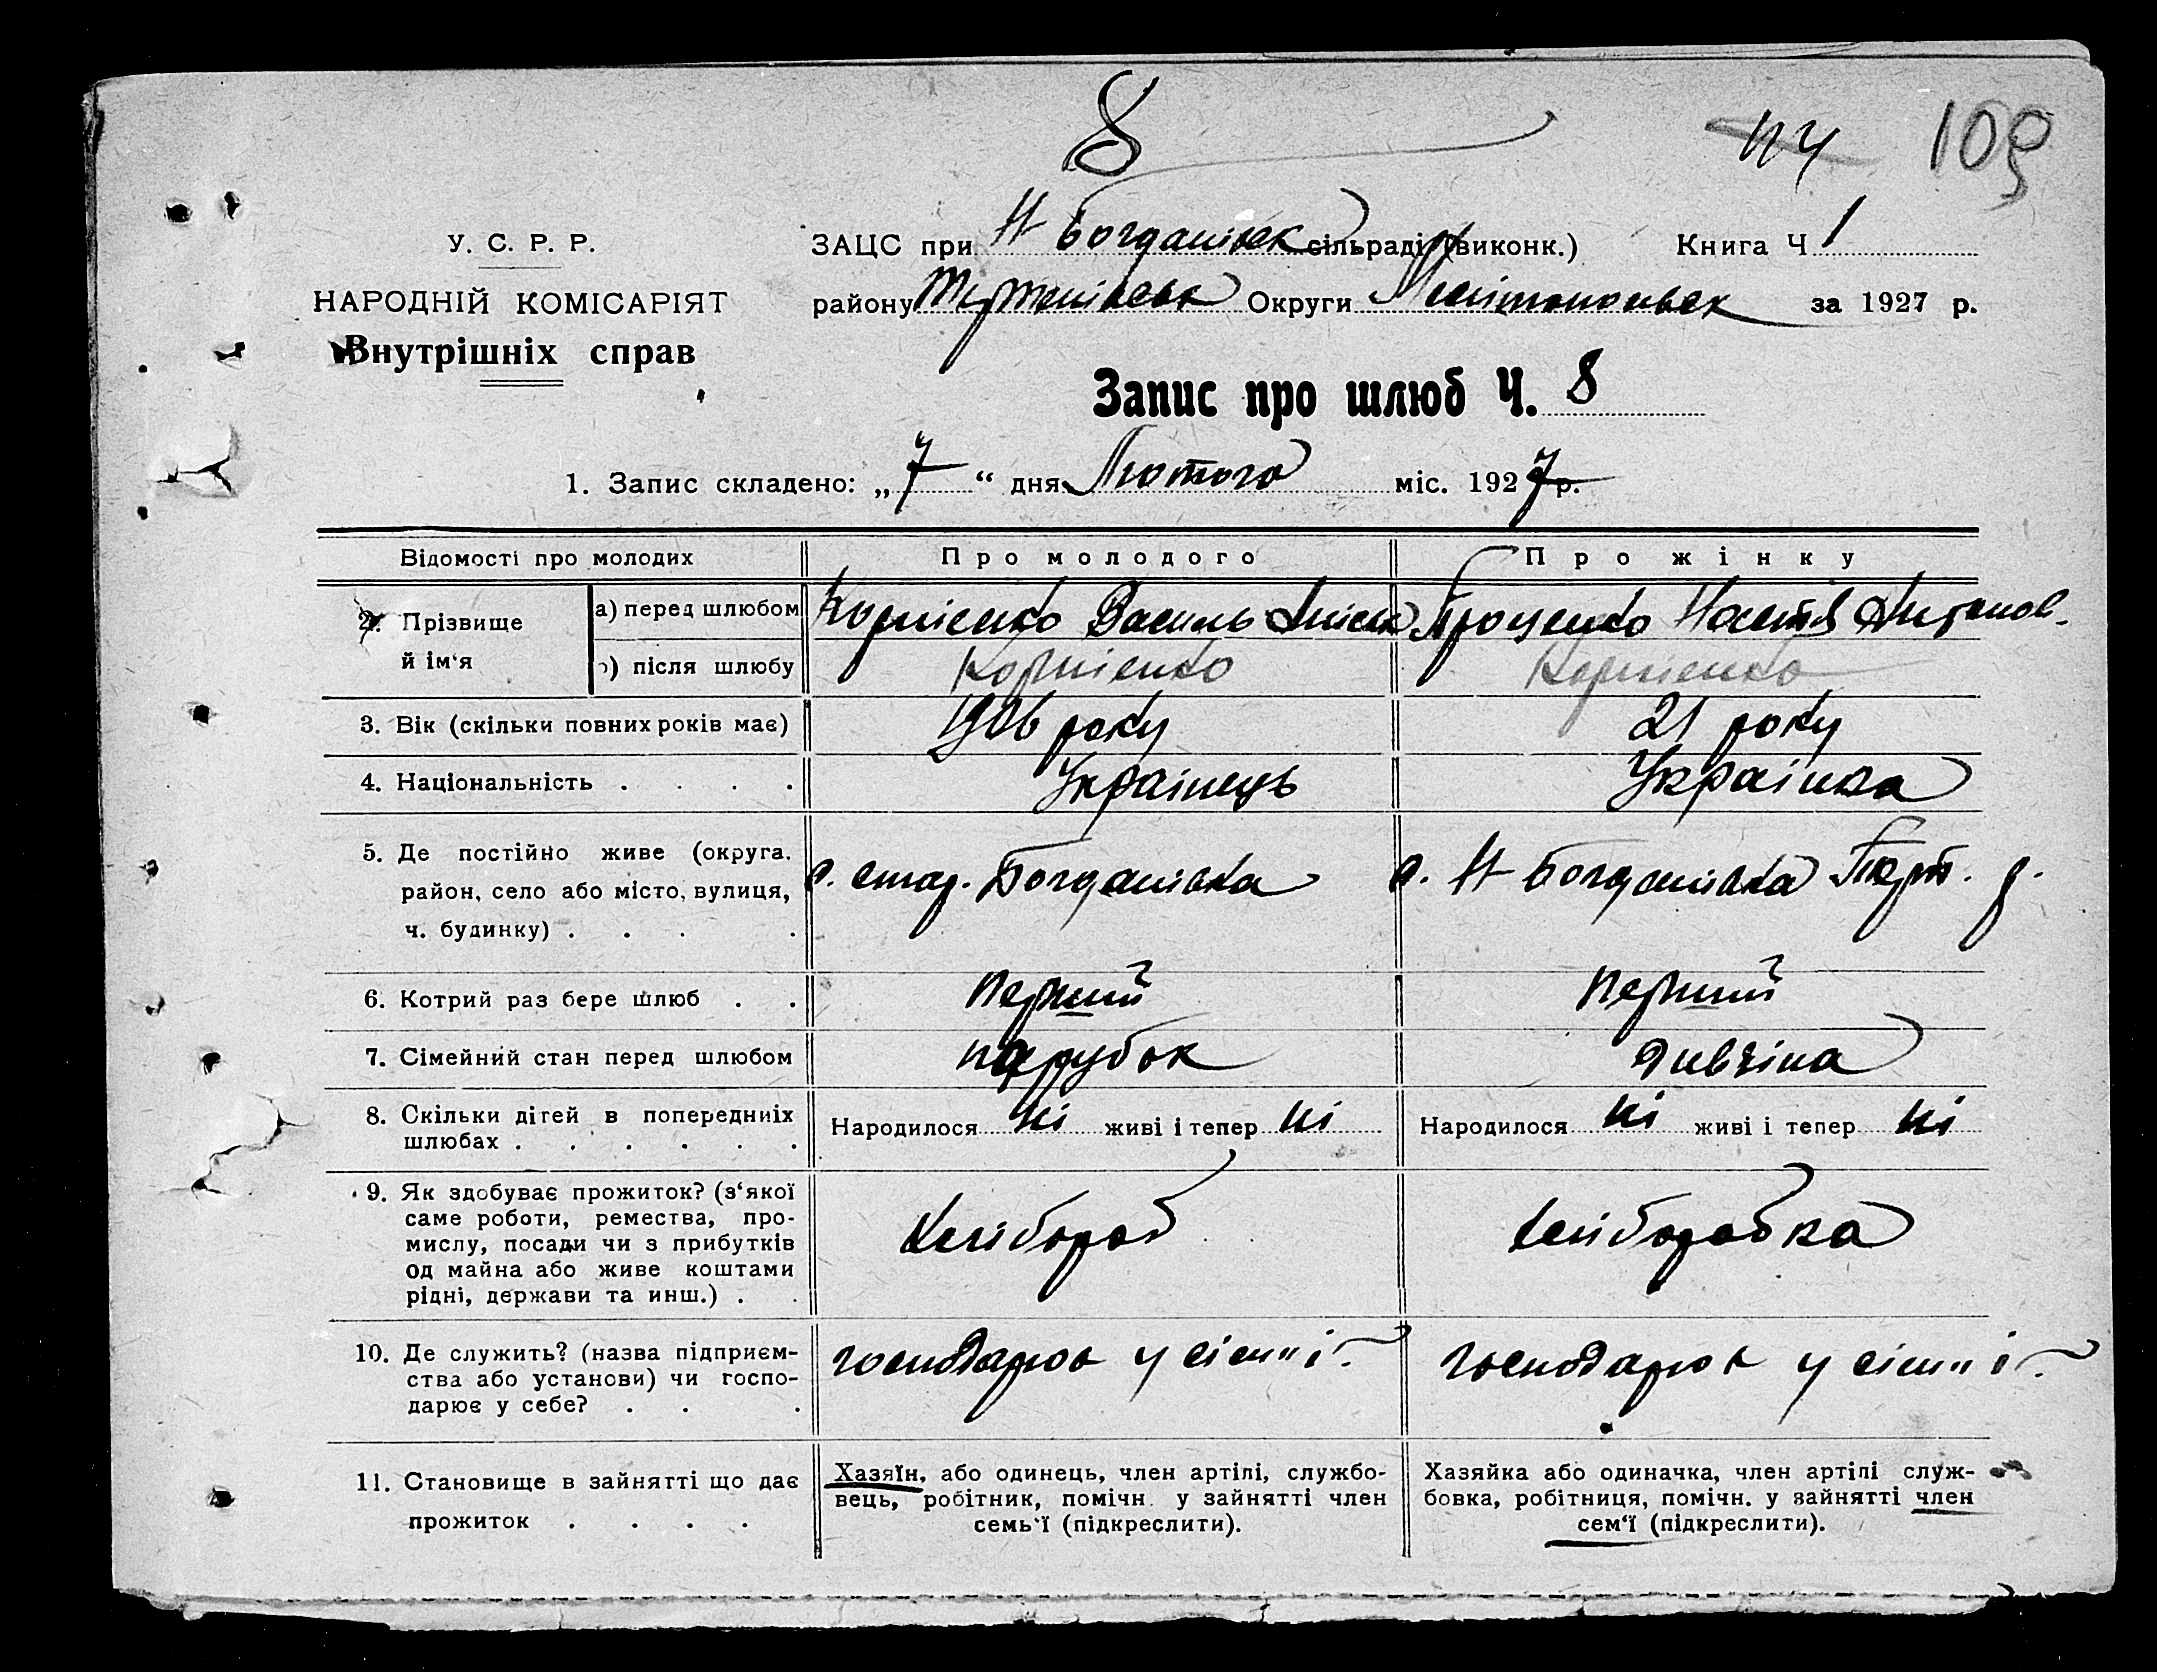 8
114 109
У. С. Р. Р.
НАРОДНІЙ КОМІСАРІЯТ
Внутрішніх справ
ЗАЦС при Н Богданівск сільраді (виконк.) Книга Ч 1
району Округи Мелітопольск за 1927 р.
Запис про шлюб Ч. 8
1. Запис складено: „7“ дня Лютого міс. 1927 р.
Відомості про молодих Про молодого Про жінку
2. Прізвище й ім'я
а) перед шлюбом Корнієнко Василь Проценко Настя
б) після шлюбу Корнієнко Корнієнко
3. Вік (скільки повних років має) 1906 року 21 року
4. Національність . . . . Українець Українка
5. Де постійно живе (округа,
район, село або місто, вулиця, с. стар. Богданівка с. Н Богданівка
ч. будинку) . . . .
6. Котрий раз бере шлюб . . перший перший
7. Сімейний стан перед шлюбом парубок дивчіна
8. Скільки дітей в попередниіх
шлюбах . . . . . . Народилося ні живі і тепер ні Народилося ні живі і тепер ні
9. Як здобуває прожиток? (з'якої
саме роботи, ремества, про-
мислу, посади чи з прибутків
од майна або живе коштами
рідні, держави та инш.) . . Хлібороб Хліборобка
10. Де служить? (назва підприєм-
ства або установи) чи госпо-
дарює у себе? . . . господарює у сімні господарює у сімні
11. Становище в зайнятті що дає
прожиток . . . .
Хазяїн, або одинець, член артілі, службо-
вець, робітник, помічн. у зайнятті член
семь'ї (підкреслити).
Хазяйка або одиначка, член артілі служ-
бовка, робітниця, помічн. у зайнятті член
сем'ї (підкреслити).